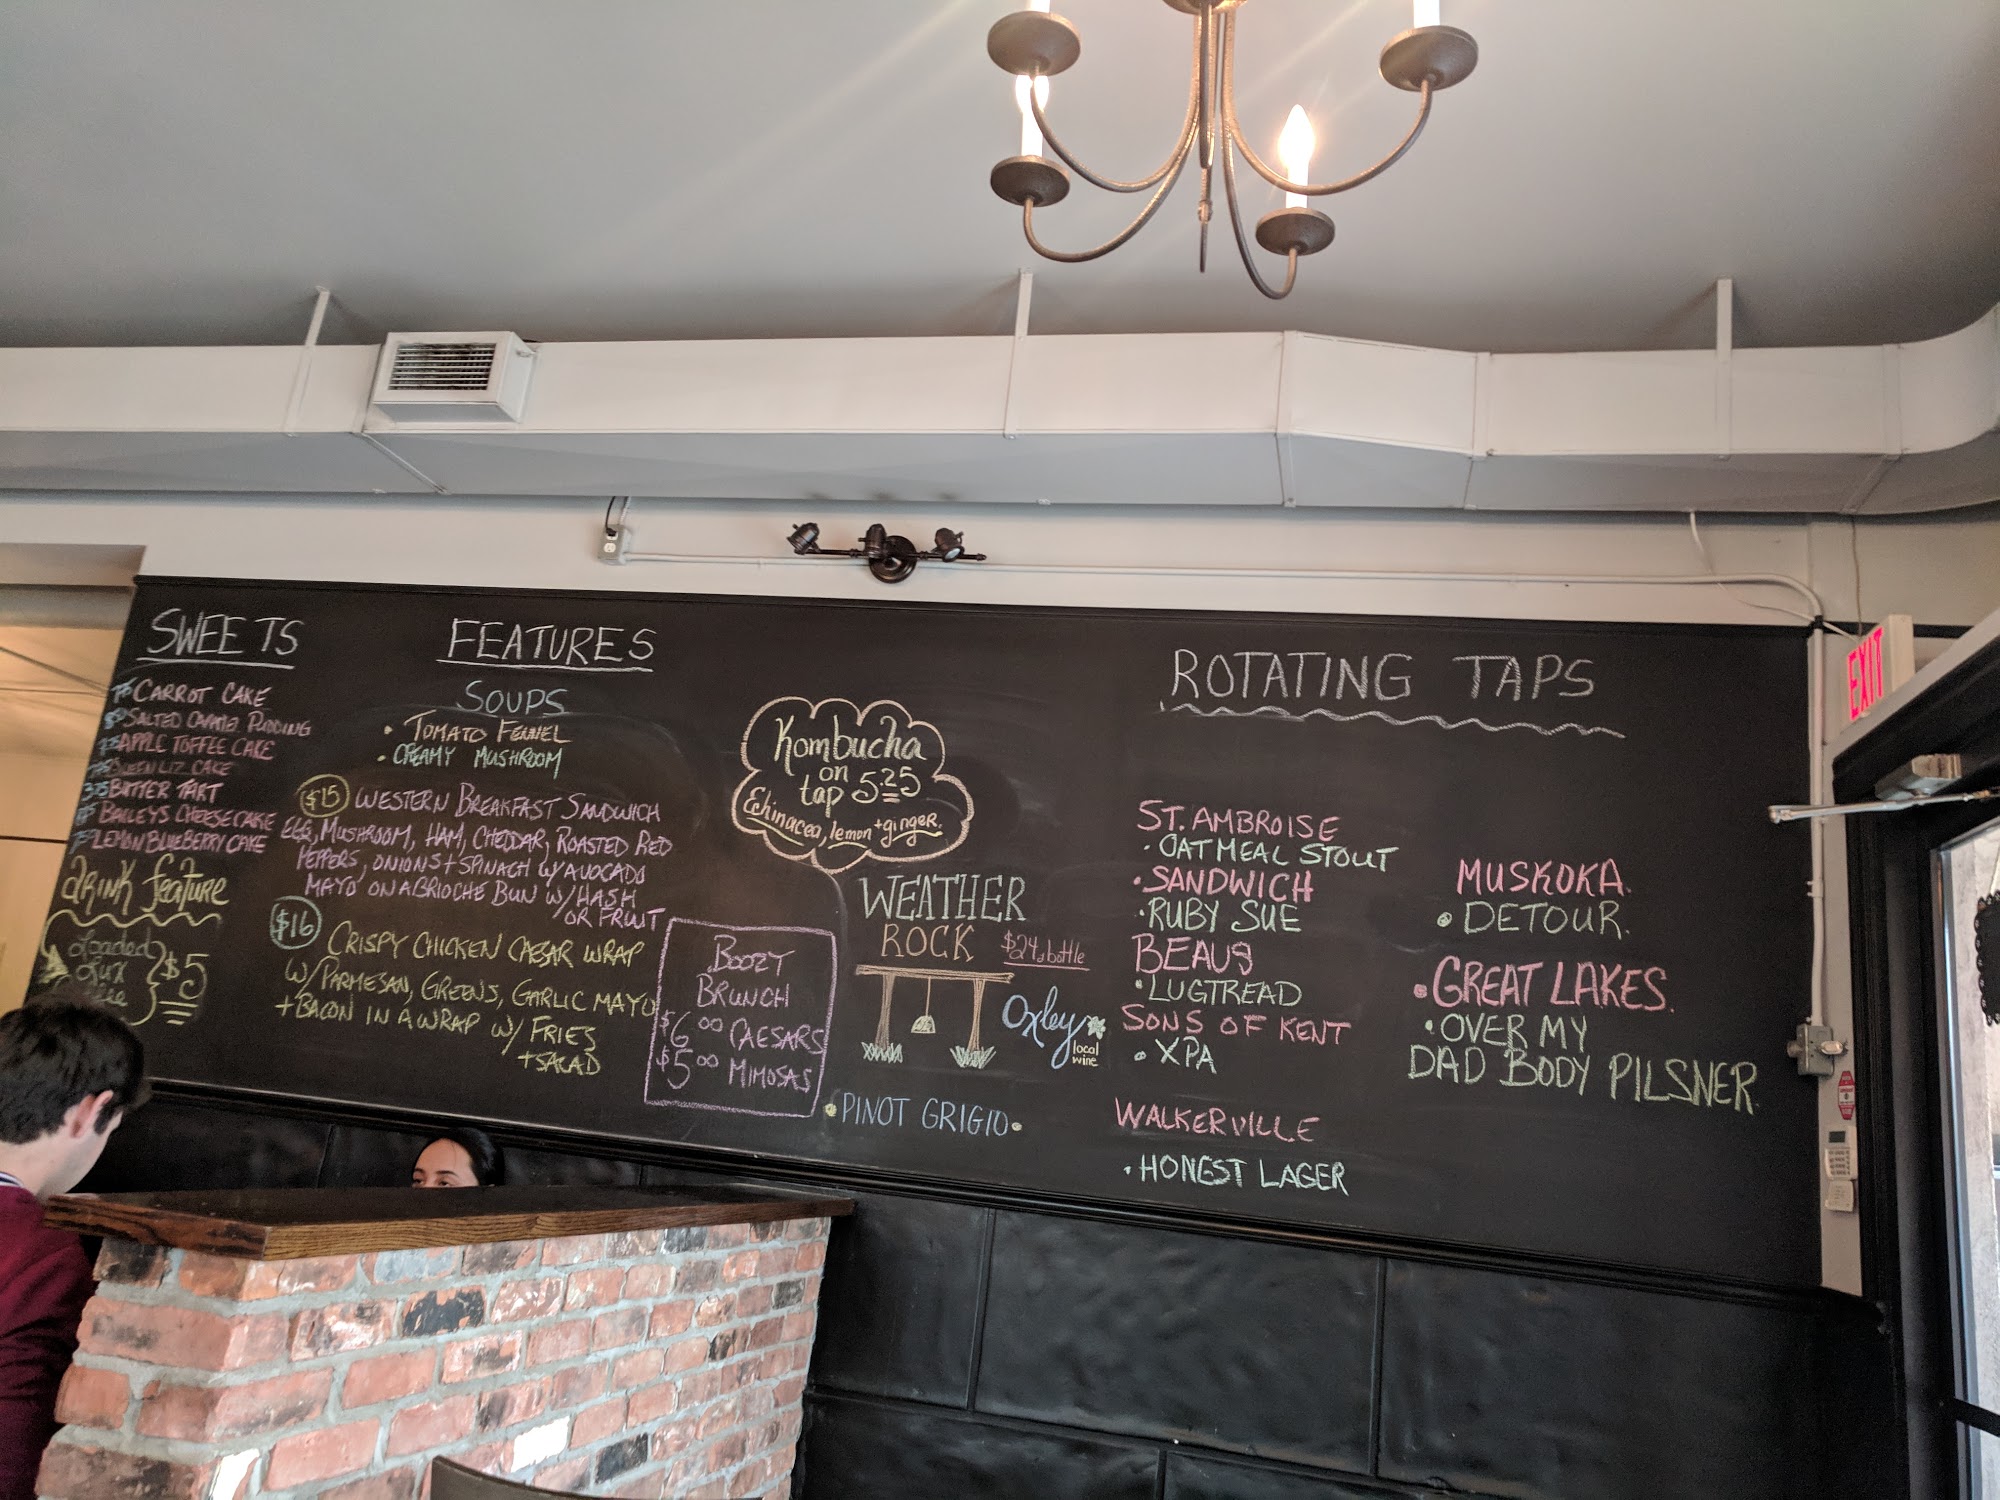 SWEETS
CARROT CAKE
SALTED CARAMEL PUDDING
APPLE TOFFEE CAKE
QUEEN LIZ CAKE
BUTTER TART
BAILEYS CHEESECAKE
LEMON BLUEBERRY CAKE
drink feature
Loaded
$5
FEATURES
SOUPS
• TOMATO FENNEL
• CREAMY MUSHROOM
$15 WESTERN BREAKFAST SANDWICH
EGG, MUSHROOM, HAM, CHEDDAR, ROASTED RED
PEPPERS, ONIONS + SPINACH W/ AVOCADO
MAYO ON A BRIOCHE BUN W/ HASH
OR FRUIT
$16 CRISPY CHICKEN CAESAR WRAP
W/ PARMESAN, GREENS, GARLIC MAYO
+ BACON IN A WRAP W/ FRIES
+ SALAD
BOOZY
BRUNCH
$6.00 CAESARS
$5.00 MIMOSAS
Kombucha
on
tap 5.25
Echinacea, lemon + ginger.
WEATHER
ROCK $24 a bottle
Oxley
local
wine
• PINOT GRIGIO •
ROTATING TAPS
ST. AMBROISE
• OATMEAL STOUT
• SANDWICH
• RUBY SUE
BEAUS
• LUGTREAD
SONS OF KENT
• XPA
WALKERVILLE
• HONEST LAGER
MUSKOKA
• DETOUR
• GREAT LAKES
• OVER MY
DAD BODY PILSNER
EXIT